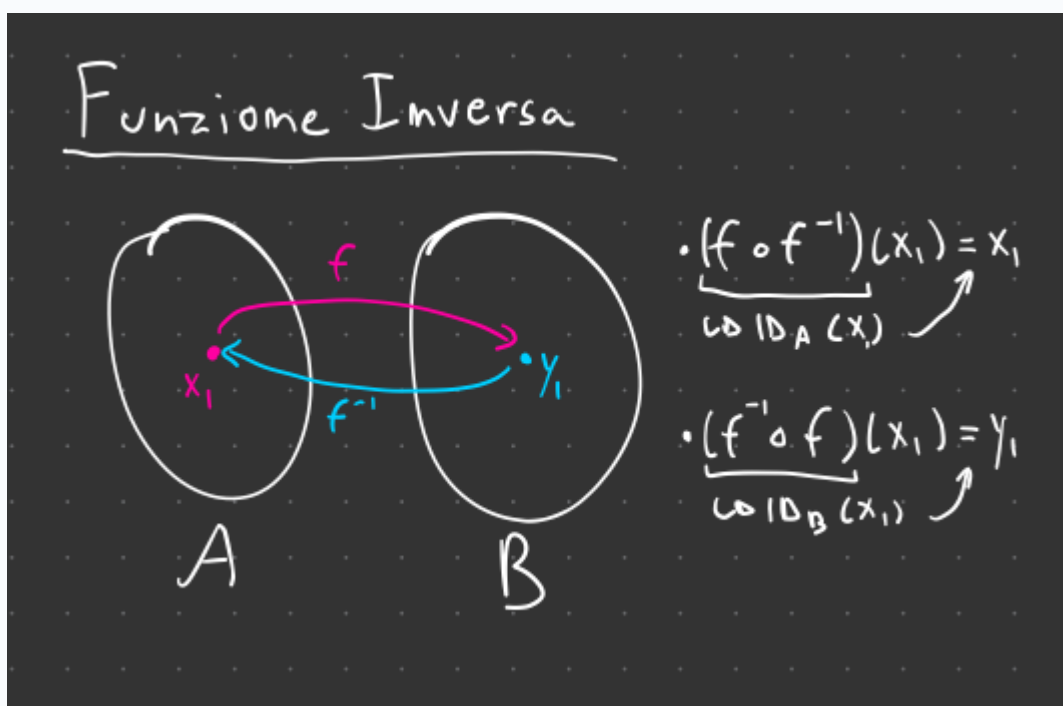 Funzione Inversa
f
x₁
y₁
f⁻¹
A
B
· (f ∘ f⁻¹)(x₁) = x₁
↳ ID_A (x₁)
· (f⁻¹ ∘ f)(x₁) = y₁
↳ ID_B (x₁)